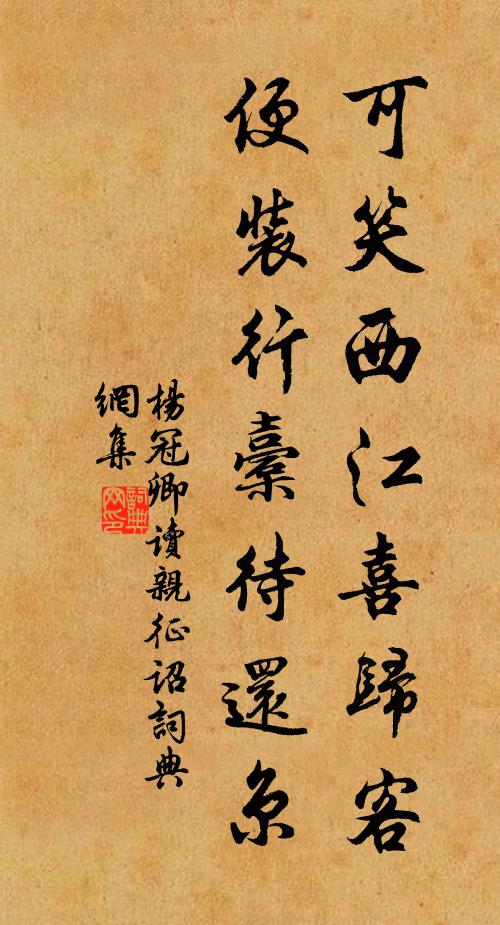 可笑西江喜歸客
便裝行橐待還京
楊冠卿讀親征詔詞典
網集
詞典
网印